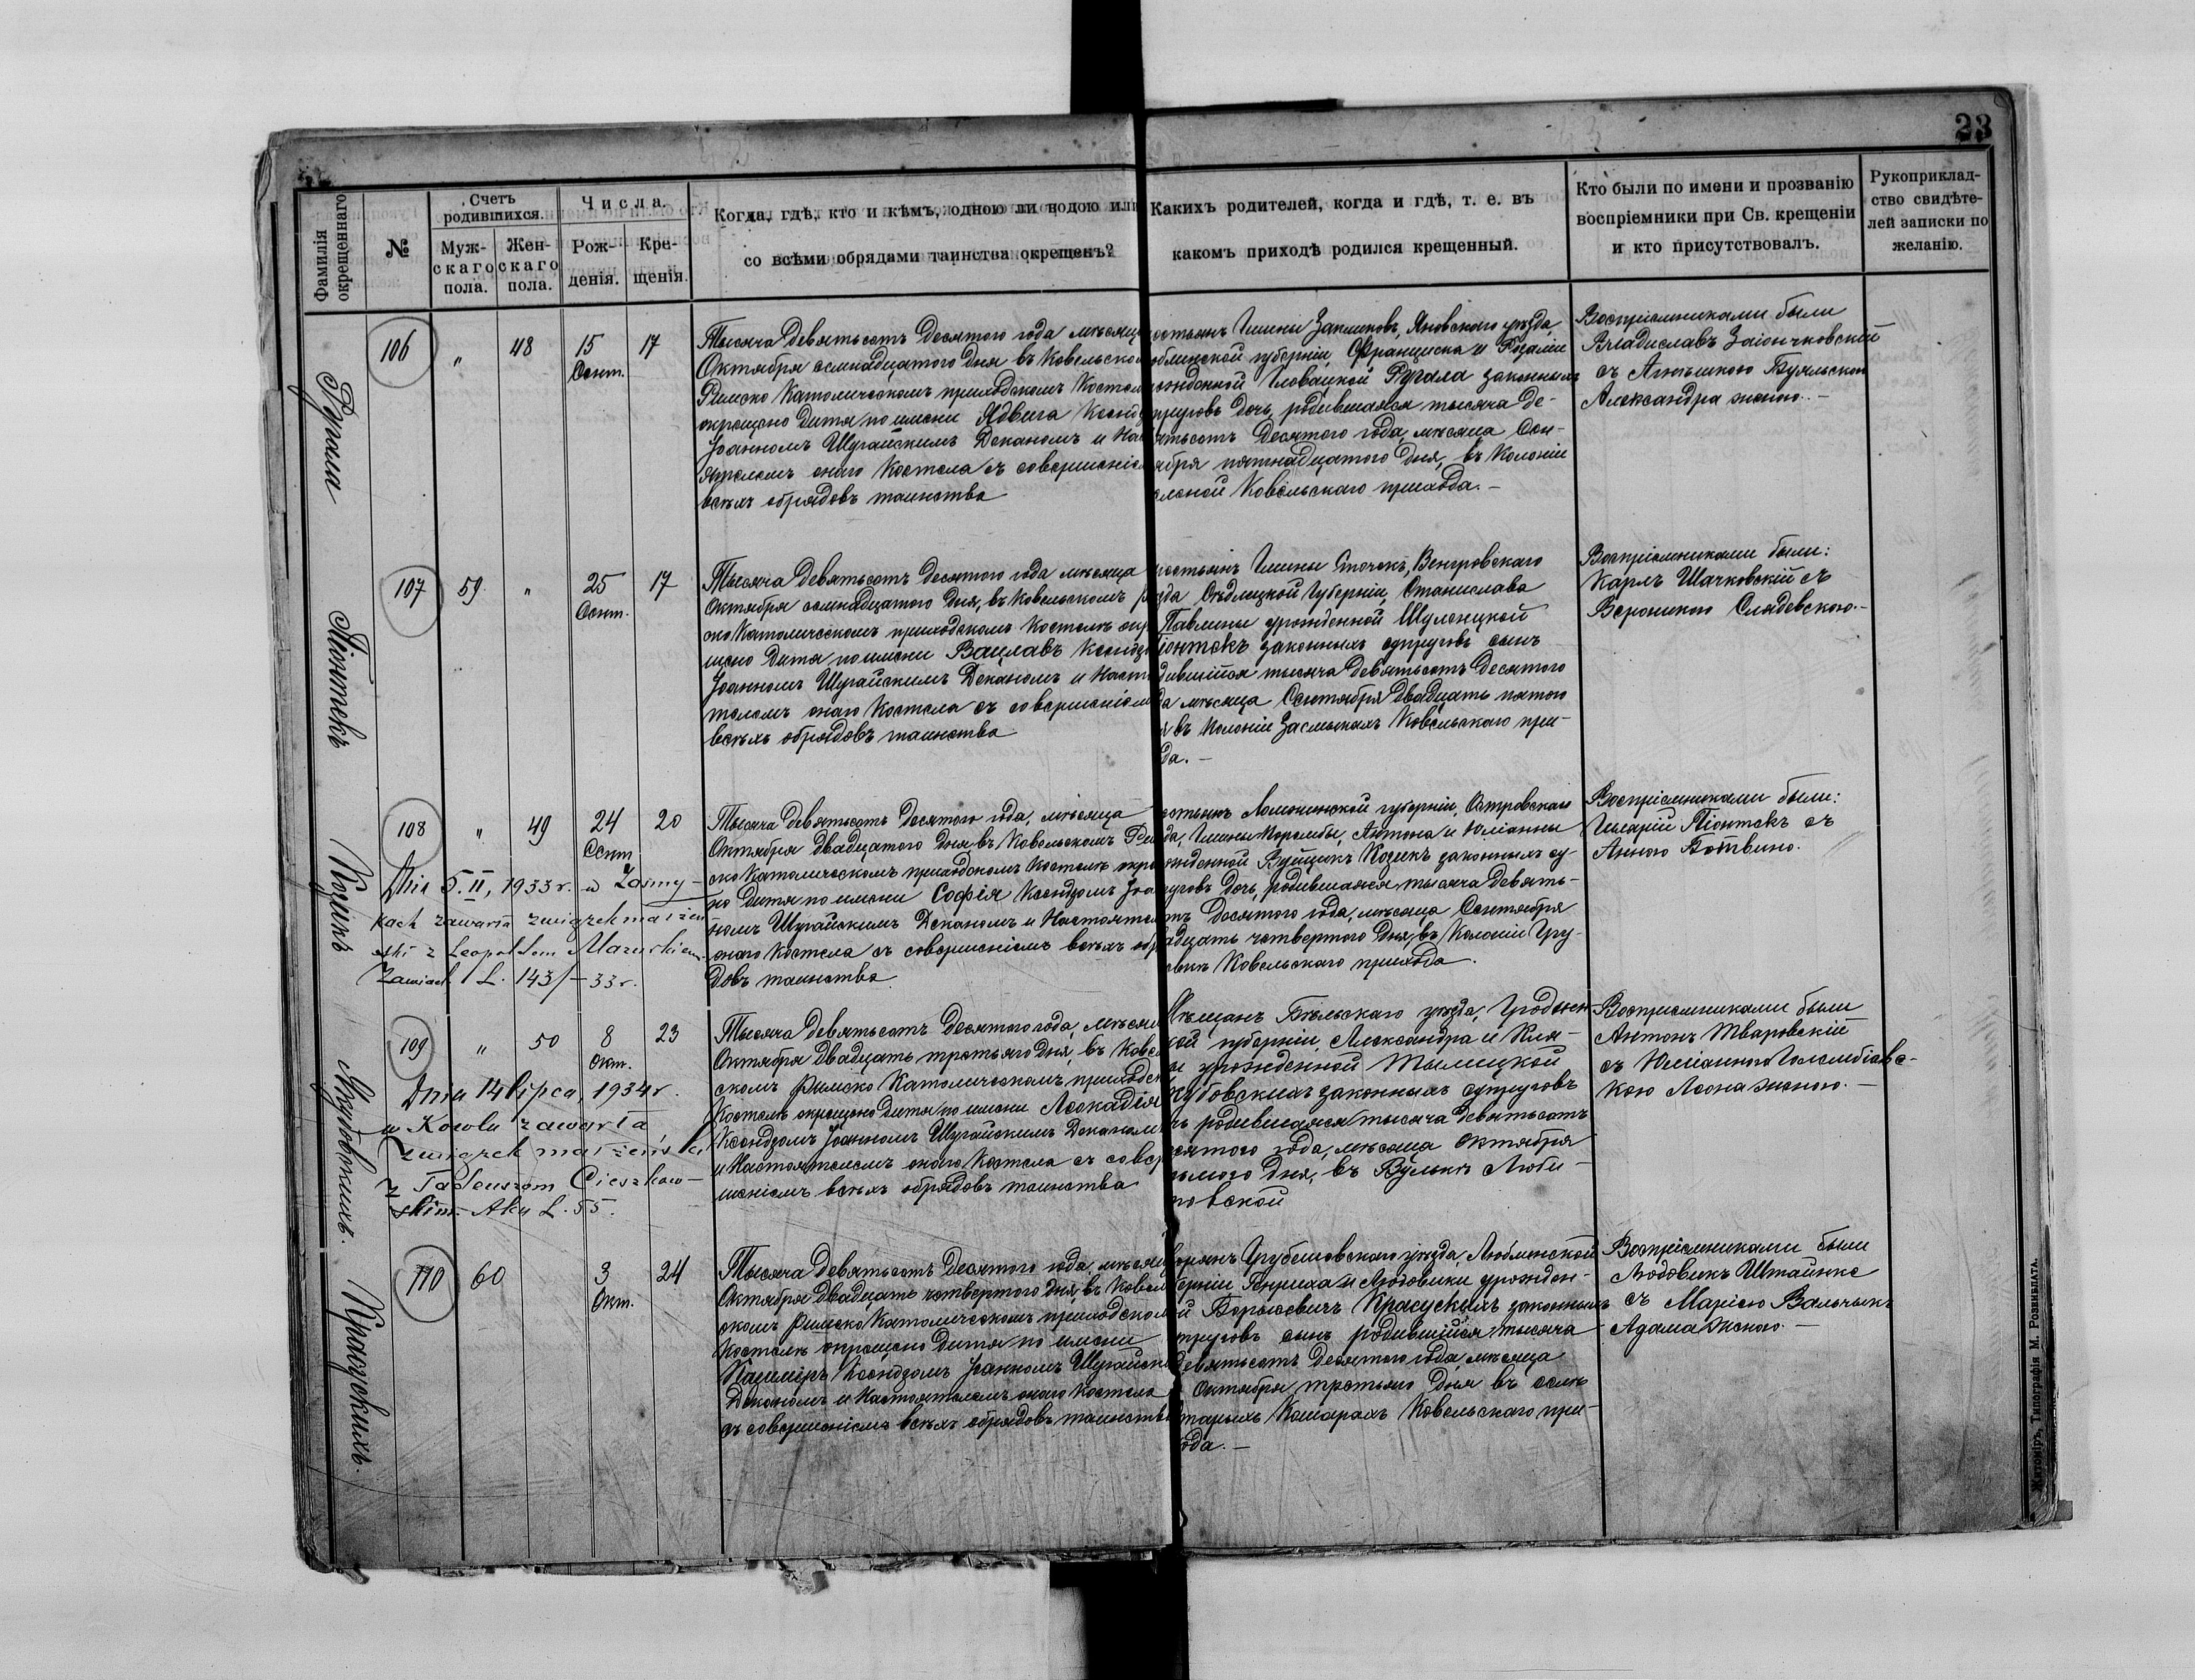 23
Фамилія окрещеннаго
№
Счетъ родившихся.
Муж- скаго пола.
Жен- скаго пола.
Числа.
Рож- денія.
Кре- щенія.
Когда, гдѣ, кто и кѣмъ, одною ли водою или
со всѣми обрядами таинства окрещенъ?
Какихъ родителей, когда и гдѣ, т. е. въ
какомъ приходѣ родился крещенный.
Кто были по имени и прозванію
воспріемники при Св. крещеніи
и кто присутствовалъ.
Рукоприклад-
ство свидѣте-
лей записки по
желанію.
106
"
48
15
Сент.
17
Тысяча девятьсотъ десятого года мѣсяца
Октября семнадцатого дня въ Ковельско
Римско Католическомъ приходскомъ Косте
окрещено дитя по имени Ядвига Ксенд
Іоанномъ Шугайскимъ Деканомъ и На
ятелемъ онаго Костела съ совершеніе
всѣхъ обрядовъ таинства
остьянъ Гмины Закликовъ, Яновскаго уѣзда,
блинской губерніи, Франциска и Розаліи
рожденной Гловацкой Ругала законныхъ
пруговъ дочь, родившаяся тысяча де-
ятьсотъ десятого года, мѣсяца Сен-
ября пятнадцатого дня, въ Колоніи
еленой Ковельскаго прихода. –
Воспріемниками были
Владиславъ Заіончковскій
съ Агнѣшкою Буяльскою
Александра женою. –
Піонтекъ
107
59
"
25
Сент.
17
Тысяча девятьсотъ десятого года мѣсяца
Октября семнадцатого дня, въ Ковельскомъ
ско Католическомъ приходскомъ Костелѣ окр
щено дитя по имени Вацлавъ Ксендз
Іоанномъ Шугайскимъ Деканомъ и Наст
телемъ онаго Костела съ совершеніем
всѣхъ обрядовъ таинства
рестьянъ Гмины Сточекъ, Венгровскаго
зда Сѣдлецкой Губерніи, Станислава
Павлины урожденной Шуленцкой
іонтекъ законныхъ супруговъ сынъ
дившійся тысяча девятьсотъ десятого
да мѣсяца Сентября двадцать пятого
я въ Колоніи Засмыкахъ Ковельскаго при-
да. –
Воспріемниками были:
Карлъ Шачковскій съ
Вероникою Слядевскою. –
Козикъ
108
"
49
24
Сент
20
Dnia 5.II, 1933 r. w Zasmy-
kach zawarła związek małżeń
ski z Leopoldem Mazurkiem
Zawiad. L. 143/–33 r.
Тысяча девятьсотъ десятого года, мѣсяца
Октября двадцатого дня въ Ковельскомъ Рим
ско Католическомъ приходскомъ Костелѣ окре
но дитя по имени Софія Ксендзомъ Іоа
номъ Шугайскимъ Деканомъ и Настоятел
онаго Костела съ совершеніемъ всѣхъ обр
довъ таинства
остьянъ Ломжинской губерніи, Островскаго
да, Гмины, Антона и Юліанны
ожденной Вуйцикъ Козикъ законныхъ су-
уговъ дочь, родившаяся тысяча девять-
тъ десятого года, мѣсяца Сентября
адцать четвертого дня, въ Колоніи Гру-
Ковельскаго прихода.
Воспріемниками были:
Гиларій Піонтекъ съ
Анною Ботвино.
109
"
50
8
Окт.
23
Dnia 14 lipca, 1934 r.
w Kowlu zawarła
związek małżeński
z Tadeuszem Cieszkow-
skim. Akt L. 55.
Тысяча девятьсотъ десятого года, мѣсяц
Октября двадцать третьяго дня, въ Ковел
скомъ Римско Католическомъ приходск
Костелѣ окрещено дитя по имени Леокадія
Ксендзомъ Іоанномъ Шугайскимъ Деканом
и Настоятелемъ онаго Костела съ совер
шеніемъ всѣхъ обрядовъ таинства
Мѣщанъ Бѣльскаго уѣзда, Гроднен-
ой губерніи, Александра и Кла-
урожденной
законныхъ супруговъ
ь родившаяся тысяча девятьсотъ
есятого года, мѣсяца Октября
ьмого дня, въ Вулькѣ Люби-
товской
Воспріемниками были
Антонъ Тваровскій
съ Юліанною Голембіовс-
кою Леона женою. –
Красускихъ.
110
60
3
Окт.
24
Тысяча девятьсотъ десятого года, мѣсяц
Октября двадцать четвертого дня, въ Ковел
скомъ Римско Католическомъ приходском
Костелѣ окрещено дитя по имени
Казиміръ Ксендзомъ Іоанномъ Шугайски
Деканомъ и Настоятелемъ онаго Костела
съ совершеніемъ всѣхъ обрядовъ таинства
ворянъ Грубешовскаго уѣзда, Люблинской
берніи Генриха и Людовики урожден-
й Борысевичъ Красускихъ законныхъ
пруговъ сынъ родившійся тысяча
девятьсотъ десятого года, мѣсяца
Октября третьяго дня въ селѣ
тарыхъ Кошарахъ Ковельскаго при-
ода. –
Воспріемниками были
Людовикъ Штайнке
съ Маріею Вальчыкъ
Адама женою. –
Житоміръ, Типографія М. Розенблата.